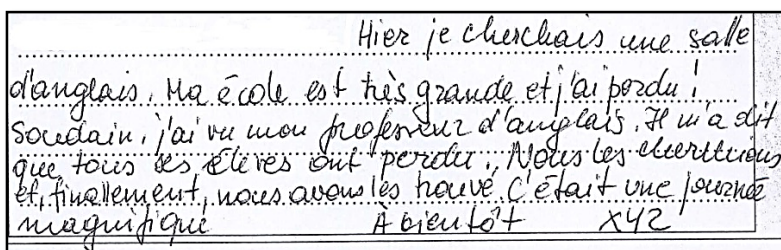 Hier je cherchais une salle
d'anglais. Ma école est très grande et j'ai perdu !
Soudain, j'ai vu mon professeur d'anglais. Il m'a dit
que tous ses élèves ont perdu. Nous les cherchions
et, finallement, nous avons les trouvé. C'était une journée
magnifique À bientôt XYZ